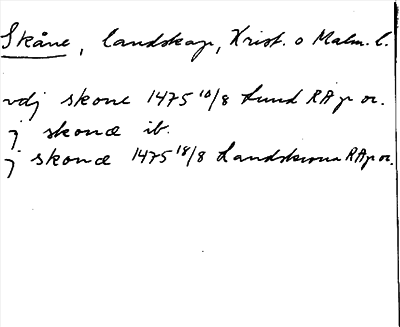 Skåne, landskap, Krist. o Malm. l.
vdj skone 1475 10/8 Lund RAp or.
j skonæ ib.
j skonæ 1475 18/8 Landskrona RAp or.